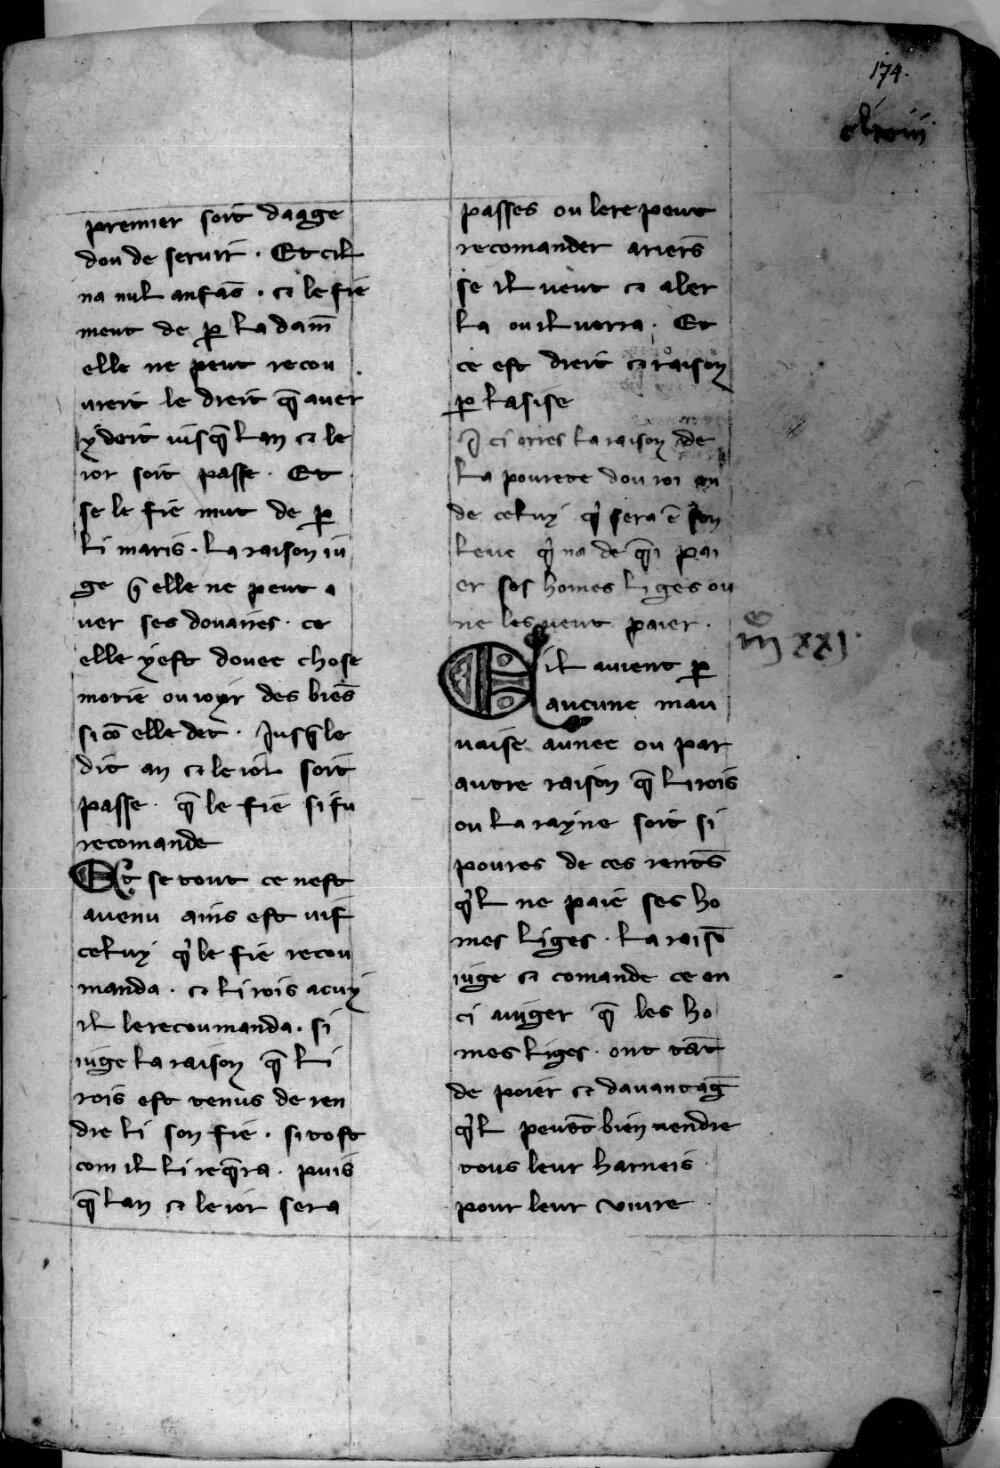 174.
clxviii
premier soit daage
dou de seruir . Et cil
na nul anfãs . ⁊ le fie
ment de p̱ la dam̄
elle ne peut recou
urert le dreit q̃ auer
y dort iusq̃ lan ⁊ le
ior soit passe . Et
se le fie mut de p̱
li maris . la raison iu
ge q̃ elle ne peut a
uer ses douaires . ce
elle yest douee chose
motie ou ioyr des biẽs
si cõ elle det . Jusq̃ le
dit an ⁊ le ior soit
passe . q̃ le fie si fu
recomande
Et se tout ce nest
auenu ains est uif
celuy q̉ le fie recou
manda . ⁊ li rois acuy
il lerecoumanda . si
iuge la raison q̃ li
rois est tenus de ren
dre li son fie . si tost
com il li req̃ra . puis
q̃ lan ⁊ le ior sera
passes ou lere peut
recomander ariers̃
se il ueut ⁊ aler
la ou il uorra . Et
ce est dreit ⁊ raison
p̱ lasise
ci orres la raison de
la pourete dou roi ou
de celuy q̉ sera ẽ son
leuc q̉ na de q̃i pai
er ses homes liges ou
ne les ueut paier .
m̃ xxj .
Cil auient p̱
aucune mau
uaise aunee ou par
autre raison q̃ li rois
ou la rayne soit si
poures de ces rentẽs
q̉l ne paie ses ho
mes liges . la raisõ
iuge ⁊ comande ce en
ci aiuger q̃ les ho
mes liges . ont tãt
de poier ⁊ dauantag̃
q̉l peuẽt bien uendre
tous leur harneis
pour leur viure .